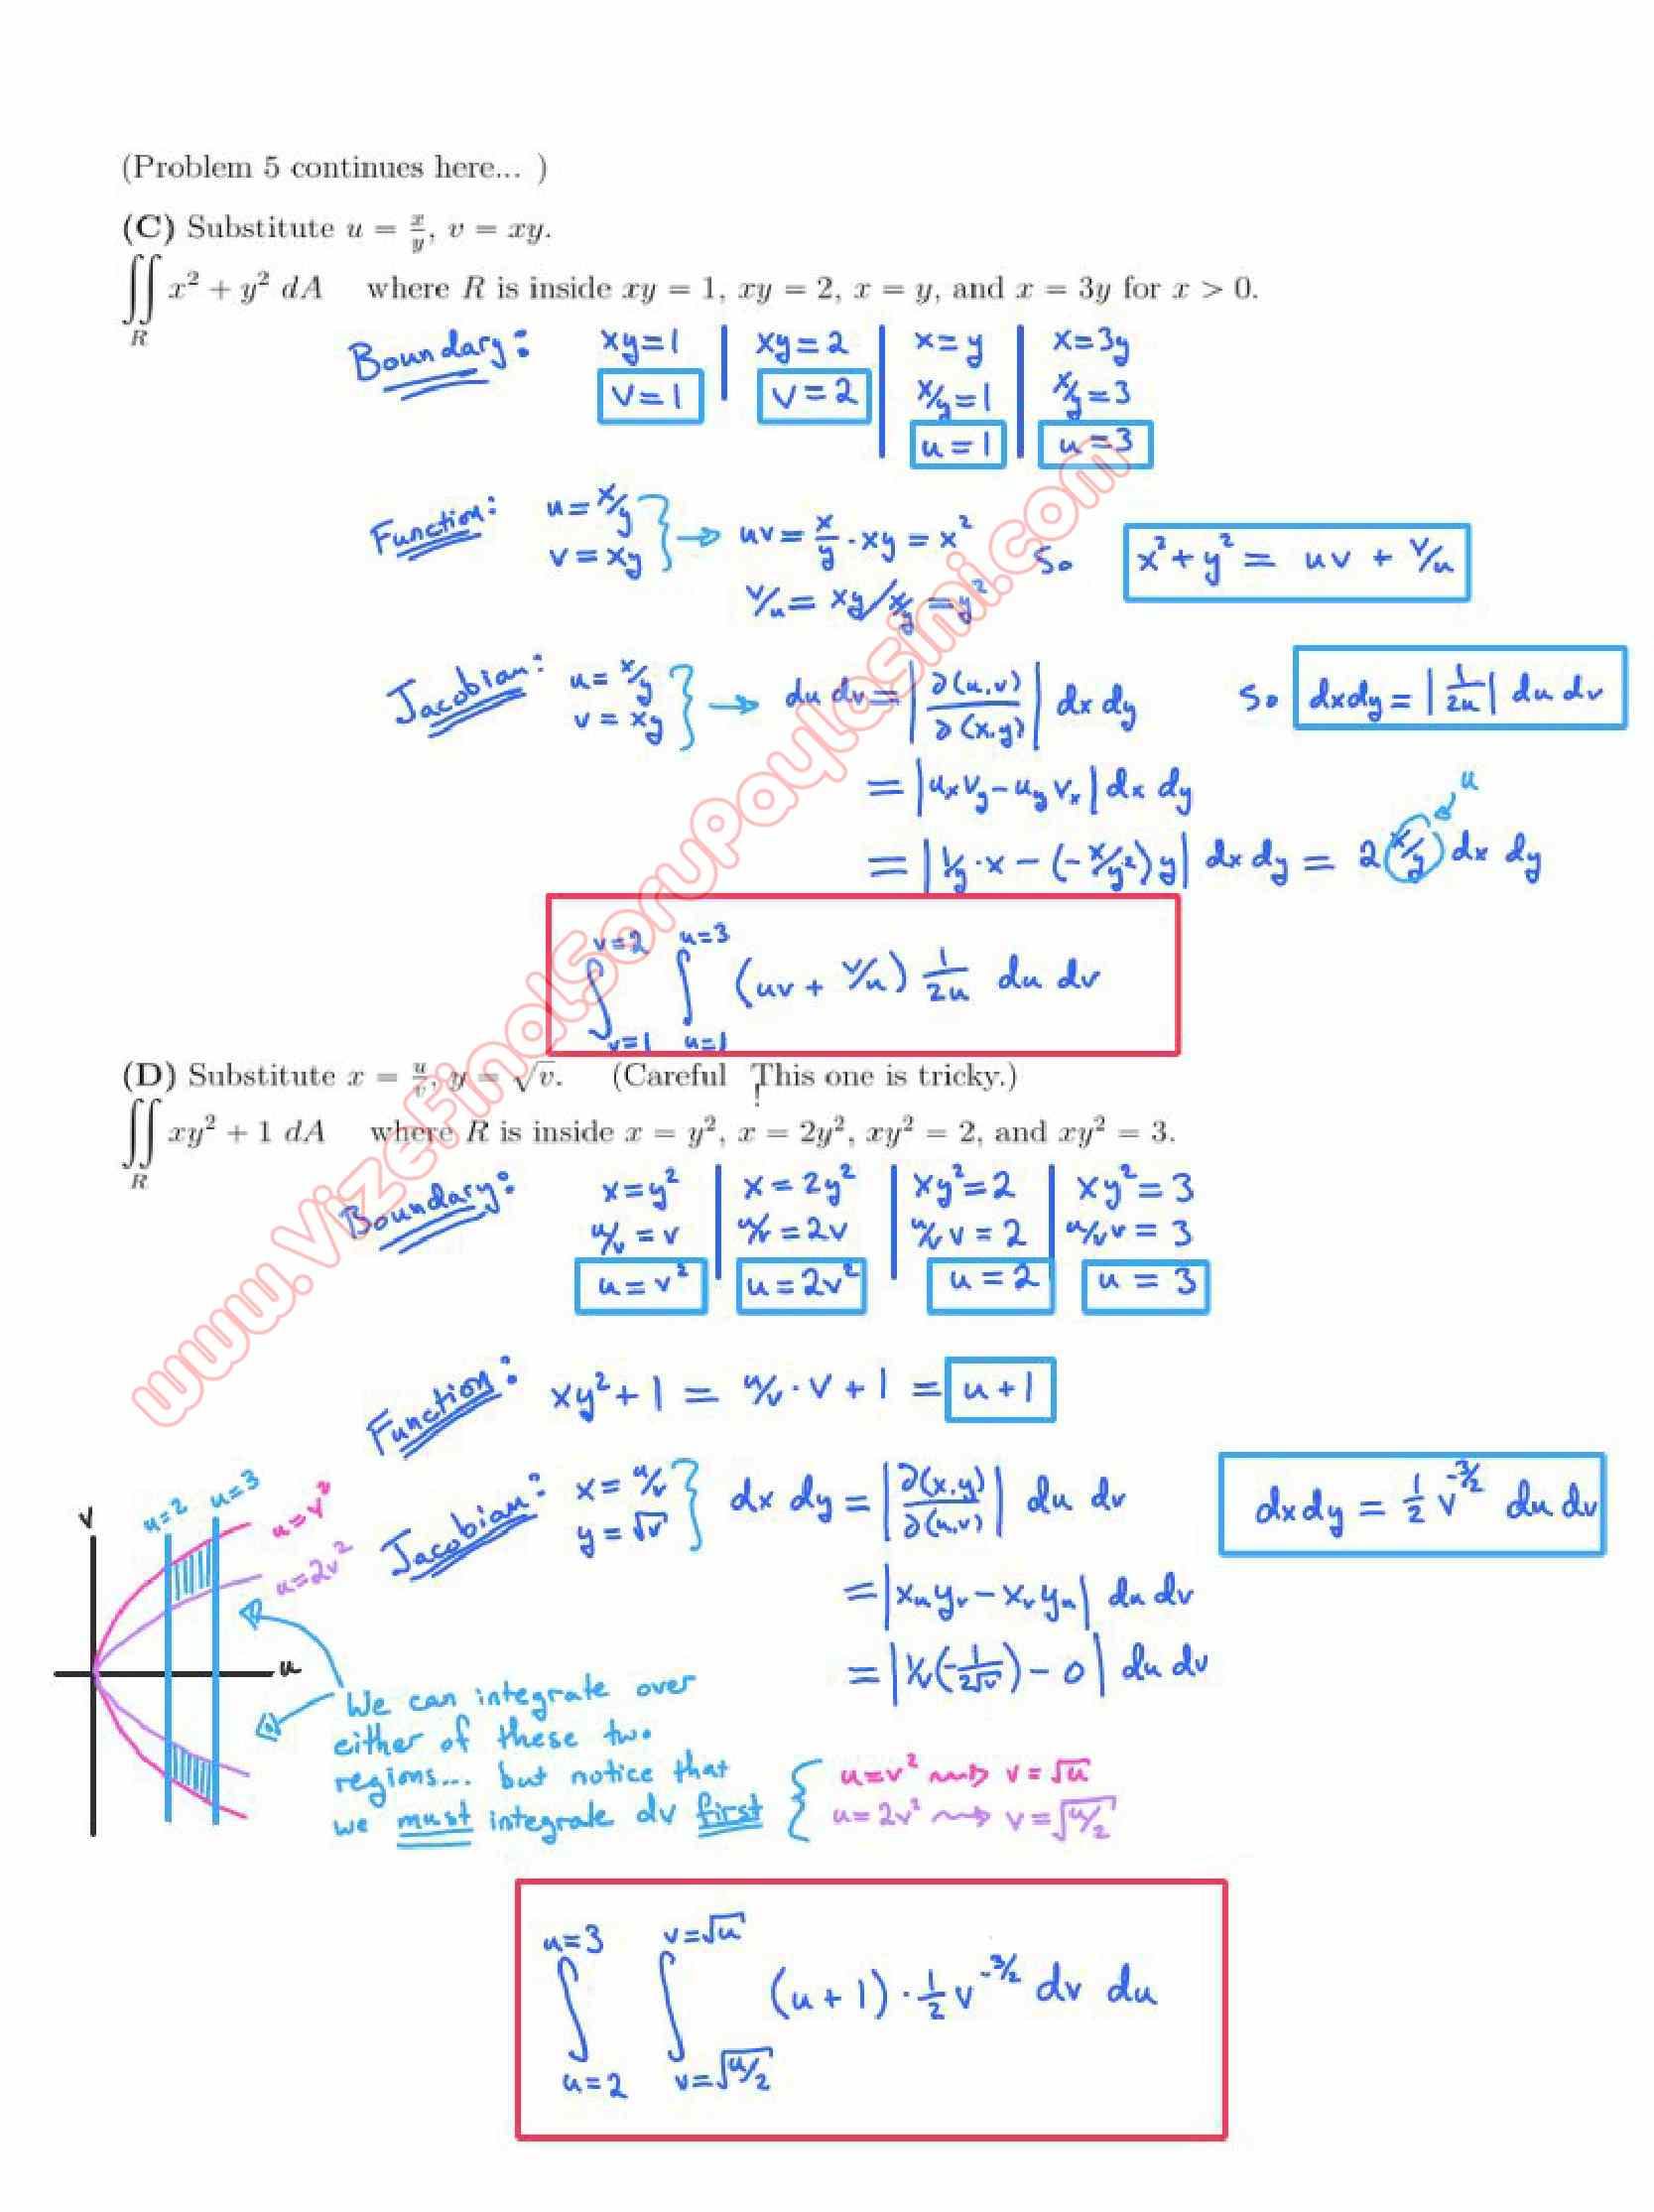 (Problem 5 continues here... )
(C) Substitute u = x/y, v = xy.
∬_R x² + y² dA where R is inside xy = 1, xy = 2, x = y, and x = 3y for x > 0.
Boundary: xy=1 | xy=2 | x=y | x=3y
v=1 v=2 x/y=1 x/y=3
u=1 u=3
Function: u=x/y v=xy } → uv = x/y · xy = x² so x²+y² = uv + v/u
v/u = xy/x/y = y²
Jacobian: u=x/y v=xy } → du dv = |∂(u,v)/∂(x,y)| dx dy so dxdy = |1/2u| du dv
= |uₓv_y - u_y vₓ| dx dy
= |1/y · x - (-x/y²)y| dx dy = 2(x/y) dx dy u
∫_{v=1}^{v=2} ∫_{u=1}^{u=3} (uv + v/u) 1/2u du dv
(D) Substitute x = u/v, y = √v. (Careful! This one is tricky.)
∬_R xy² + 1 dA where R is inside x = y², x = 2y², xy² = 2, and xy² = 3.
Boundary: x=y² | x=2y² | xy²=2 | xy²=3
u/v = v u/v = 2v u/v v = 2 u/v v = 3
u=v² u=2v² u=2 u=3
Function: xy²+1 = u/v · v + 1 = u+1
Jacobian: x=u/v y=√v } dx dy = |∂(x,y)/∂(u,v)| du dv dxdy = 1/2 v^{-3/2} du dv
= |x_u y_v - x_v y_u| du dv
= |1/v(-1/2√v) - 0| du dv
v u=2 u=3 u=v²
u=2v²
u
We can integrate over
either of these two
regions... but notice that
we must integrate dv first { u=v² ⇝ v=√u
u=2v² ⇝ v=√u/2
∫_{u=2}^{u=3} ∫_{v=√u/2}^{v=√u} (u+1) · 1/2 v^{-3/2} dv du
www.VizeFinalSoruPaylasimi.com